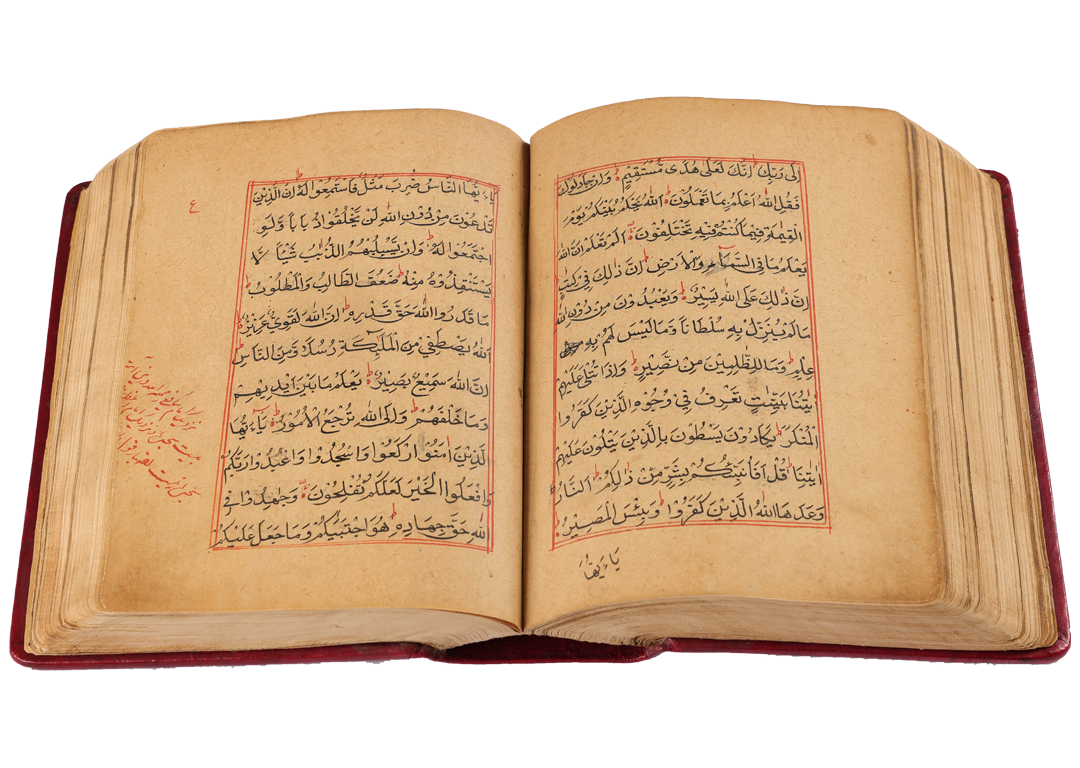 لى ربك انك لعلى هدى مستقيم وان جادلوك
فقل الله اعلم بما تعملون الله يحكم بينكم يوم
القيمة فيما كنتم فيه تختلفون الم تعلم ان الله
يعلم ما في السماء والارض ان ذلك في كتب
ان ذلك على الله يسير ويعبدون من دون الله
ما لم ينزل به سلطانا وما ليس لهم به
علم وما للظلمين من نصير واذا تتلى عليهم
ايتنا بينت تعرف في وجوه الذين كفروا
المنكر يكادون يسطون بالذين يتلون عليهم
ايتنا قل افانبئكم بشر من ذلكم النار
وعدها الله الذين كفروا وبئس المصير
ياءيها
ياءيها الناس ضرب مثل فاستمعوا له ان الذين
تدعون من دون الله لن يخلقوا ذبابا ولو
اجتمعوا له وان يسلبهم الذباب شيئا لا
يستنقذوه منه ضعف الطالب والمطلوب
ما قدروا الله حق قدره ان الله لقوي عزيز
الله يصطفي من الملئكة رسلا ومن الناس
ان الله سميع بصير يعلم ما بين ايديهم
وما خلفهم والى الله ترجع الامور ياءيها
الذين امنوا اركعوا واسجدوا واعبدوا ربكم
وافعلوا الخير لعلكم تفلحون وجهدوا في
الله حق جهاده هو اجتبيكم وما جعل عليكم
ع